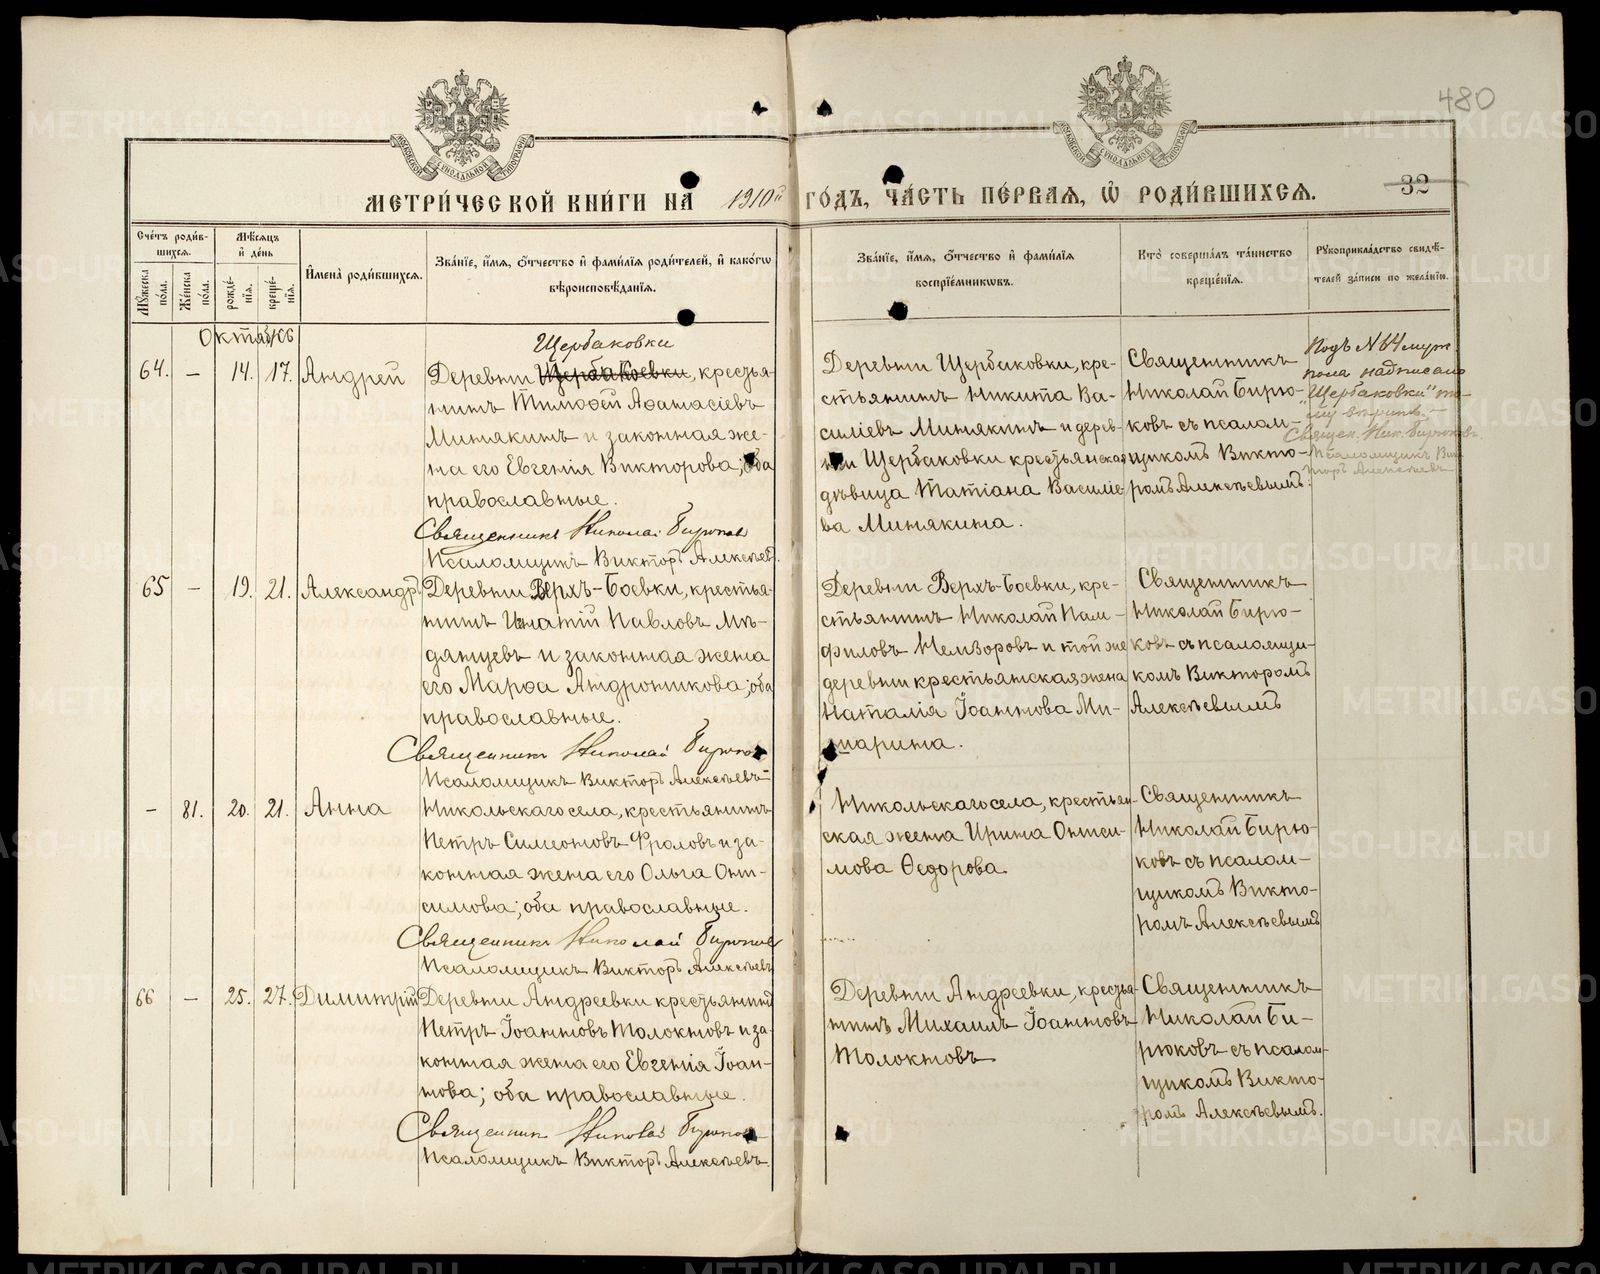 480
МЕТРИ́ЧЕСКОЙ КНИ́ГИ НА 1910й ГО́ДЪ, ЧА́СТЬ ПЕ́РВАЯ, Ѽ РОДИ́ВШИХСЯ.
32
Сче́тъ роди́вшихся.
Мѣ́сяцъ и҆ де́нь
И҆мена̀ роди́вшихся.
Зва́нїе, и҆́мя, о҆́тчество и҆ фами́лїя роди́телей, и҆ како́гѡ
вѣроисповѣ́данїя.
Зва́нїе, и҆́мя, о҆́тчество и҆ фами́лїя
воспрїе́мникѡвъ.
Кто̀ соверша́лъ та́инство
креще́нїя.
Рꙋкоприкла́дство свидѣ́-
телей за́писи по жела́нїю.
Мꙋ́жеска по́ла.
Же́нска по́ла.
рожде́нїя.
креще́нїя.
Октябрь
64. – 14. 17. Андрей
Щербаковки
Деревни Щербаковки, крестья-
нинъ Тимоѳей Аѳанасіевъ
Минякинъ и законная же-
на его Евгенія Викторова; оба
православные.
Священникъ Николай Бирюковъ
Псаломщикъ Викторъ Алексѣевъ
Деревни Щербаковки, кре-
стьянинъ Никита Ва-
силіевъ Минякинъ и дерев-
ни Щербаковки крестьянская
дѣвица Татіана Василіе-
ва Минякина.
Священникъ
Николай Бирю-
ковъ съ псалом-
щикомъ Викто-
ромъ Алексѣевымъ.
Подъ №64 муж
пола надписано
"Щербаковки" то-
му вѣрить. –
Священ. Ник. Бирюковъ
Псаломщикъ Вик-
торъ Алексѣевъ
65 – 19. 21. Александръ
Деревни Верхъ-Боевки, крестья-
нинъ Игнатій Павловъ Мѣ-
дянцевъ и законная жена
его Марѳа Андроникова; оба
православные.
Священникъ Николай Бирюковъ
Псаломщикъ Викторъ Алексѣевъ
Деревни Верхъ-Боевки, кре-
стьянинъ Николай Пам-
филовъ Немзоровъ и той же
деревни крестьянская жена
Наталія Іоаннова Ми-
шарина.
Священникъ
Николай Бирю-
ковъ съ псаломщи-
комъ Викторомъ
Алексѣевымъ
– 81. 20. 21. Анна
Никольскаго села, крестьянинъ
Петръ Симеоновъ Фроловъ и за-
конная жена его Ольга Они-
симова; оба православные.
Священникъ Николай Бирюковъ
Псаломщикъ Викторъ Алексѣевъ
Никольскаго села, крестьян-
ская жена Ирина Ониси-
мова Ѳедорова
Священникъ
Николай Бирю-
ковъ съ псалом-
щикомъ Викто-
ромъ Алексѣевымъ
66 – 25. 27. Димитрій
Деревни Андреевки крестьянинъ
Петръ Іоанновъ Толокновъ и за-
конная жена его Евгенія Іоан-
нова; оба православные.
Священникъ Николай Бирюковъ
Псаломщикъ Викторъ Алексѣевъ
Деревни Андреевки, крестья-
нинъ Михаилъ Іоанновъ
Толокновъ
Священникъ
Николай Би-
рюковъ съ псалом-
щикомъ Викто-
ромъ Алексѣевымъ.
METRIKI.GASO-URAL.RU